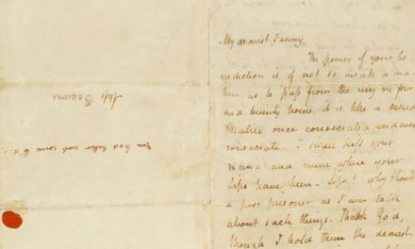 Miss Brawne
You had better not come to day
My dearest Fanny,
The power of your be-
nediction is of not so weak a na-
ture as to pass from the ring in four
and twenty hours - it is like a sacred
Chalice once consecrated and ever
consecrate. I shall kiss your
name and mine where your
Lips have been - Lips! why should
a poor prisoner as I am talk
about such things. Thank God,
though I hold them the dearest